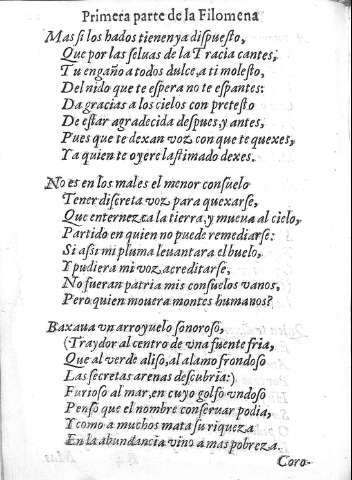 Primera parte de la Filomena
Mas si los hados tienen ya dispuesto,
Que por las seluas de la Tracia cantes,
Tu engaño a todos dulce, a ti molesto,
Del nido que te espera no te espantes:
Da gracias a los cielos con pretesto
De estar agradecida despues, y antes,
Pues que te dexan voz con que te quexes,
Y a quien te oyere lastimado dexes.
No es en los males el menor consuelo
Tener discreta voz para quexarse,
Que enternezca la tierra, y mueua al cielo,
Partido en quien no puede remediarse:
Si assi mi pluma leuantara el buelo,
Y pudiera mi voz acreditarse,
No fueran patria mis consuelos vanos,
Pero quien mouera montes humanos?
Baxaua vn arroyuelo sonoroso,
(Traydor al centro de vna fuente fria,
Que al verde aliso, al alamo frondoso
Las secretas arenas descubria:)
Furioso al mar, en cuyo golfo vndoso
Pensò que el nombre conseruar podia,
Y como a muchos mata su riqueza
En la abundancia vino a mas pobreza.
Coro-